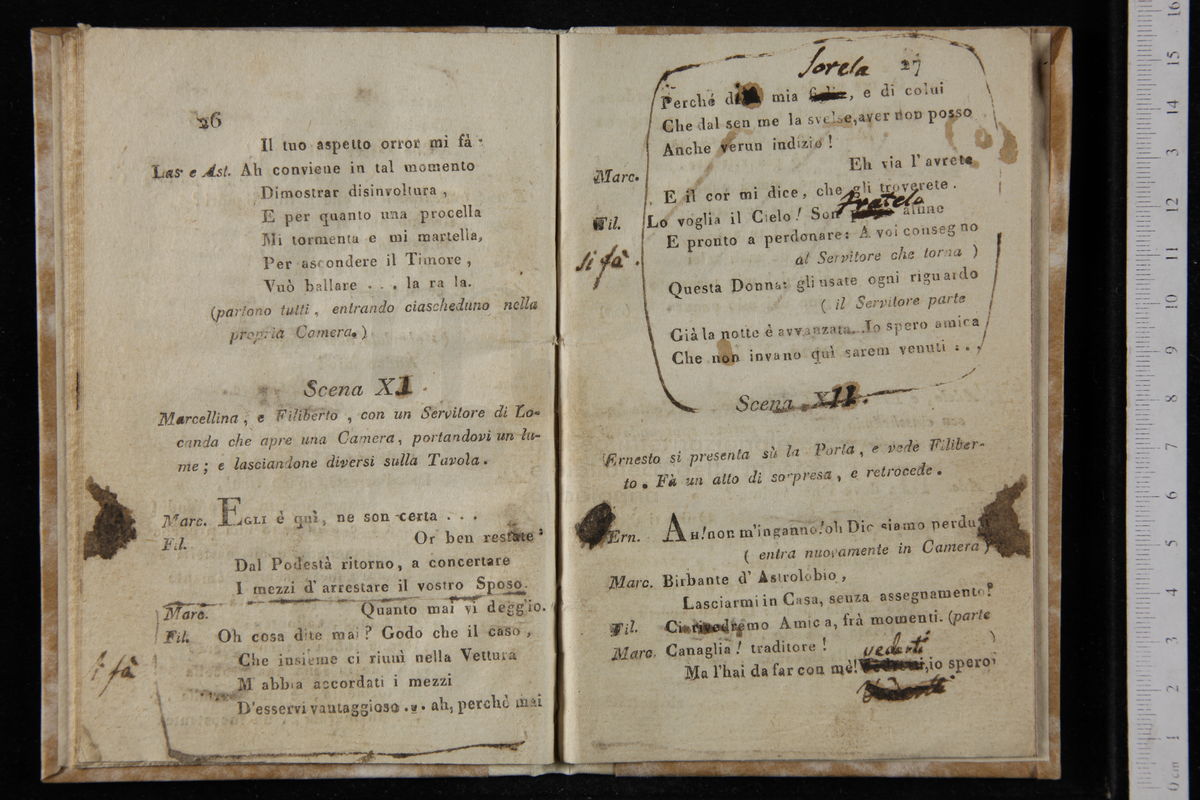 26
Il tuo aspetto orror mi fà.
Las. e Ast. Ah conviene in tal momento
Dimostrar disinvoltura,
E per quanto una procella
Mi tormenta e mi martella,
Per ascondere il Timore,
Vuò ballare . . . la ra la.
(partono tutti, entrando ciascheduno nella
propria Camera.)
Scena XI.
Marcellina, e Filiberto, con un Servitore di Lo-
canda che apre una Camera, portandovi un lu-
me; e lasciandone diversi sulla Tavola.
Marc. EGLI è quì, ne son certa . . .
Fil. Or ben restate:
Dal Podestà ritorno, a concertare
I mezzi d'arrestare il vostro Sposo.
Marc. Quanto mai vi deggio.
Fil. Oh cosa dite mai? Godo che il caso,
Che insieme ci riunì nella Vettura
si fà
M'abbia accordati i mezzi
D'esservi vantaggioso . . . ah, perchè mai
Sorela 27
Perché mia, e di colui
Che dal sen me la svelse, aver non posso
Anche verun indizio!
Marc. Eh via l'avrete
E il cor mi dice, che gli troverete.
fratelo
Fil. Lo voglia il Cielo! Son alfine
E pronto a perdonare: A voi consegno
si fà.
al Servitore che torna)
Questa Donna: gli usate ogni riguardo
(il Servitore parte
Già la notte è avvanzata...Io spero amica
Che non invano quì sarem venuti . . .
Scena XII.
Ernesto si presenta sù la Porta, e vede Filiber-
to. Fà un atto di sorpresa, e retrocede.
Ern. AH! non m'inganno! oh Dio siamo perduti
(entra nuovamente in Camera)
Marc. Birbante d'Astrolobio,
Lasciarmi in Casa, senza assegnamento?
Fil. Ci rivedremo Amica, frà momenti. (parte
Marc. Canaglia! traditore! )
vederti
Ma l'hai da far con mè! , io spero